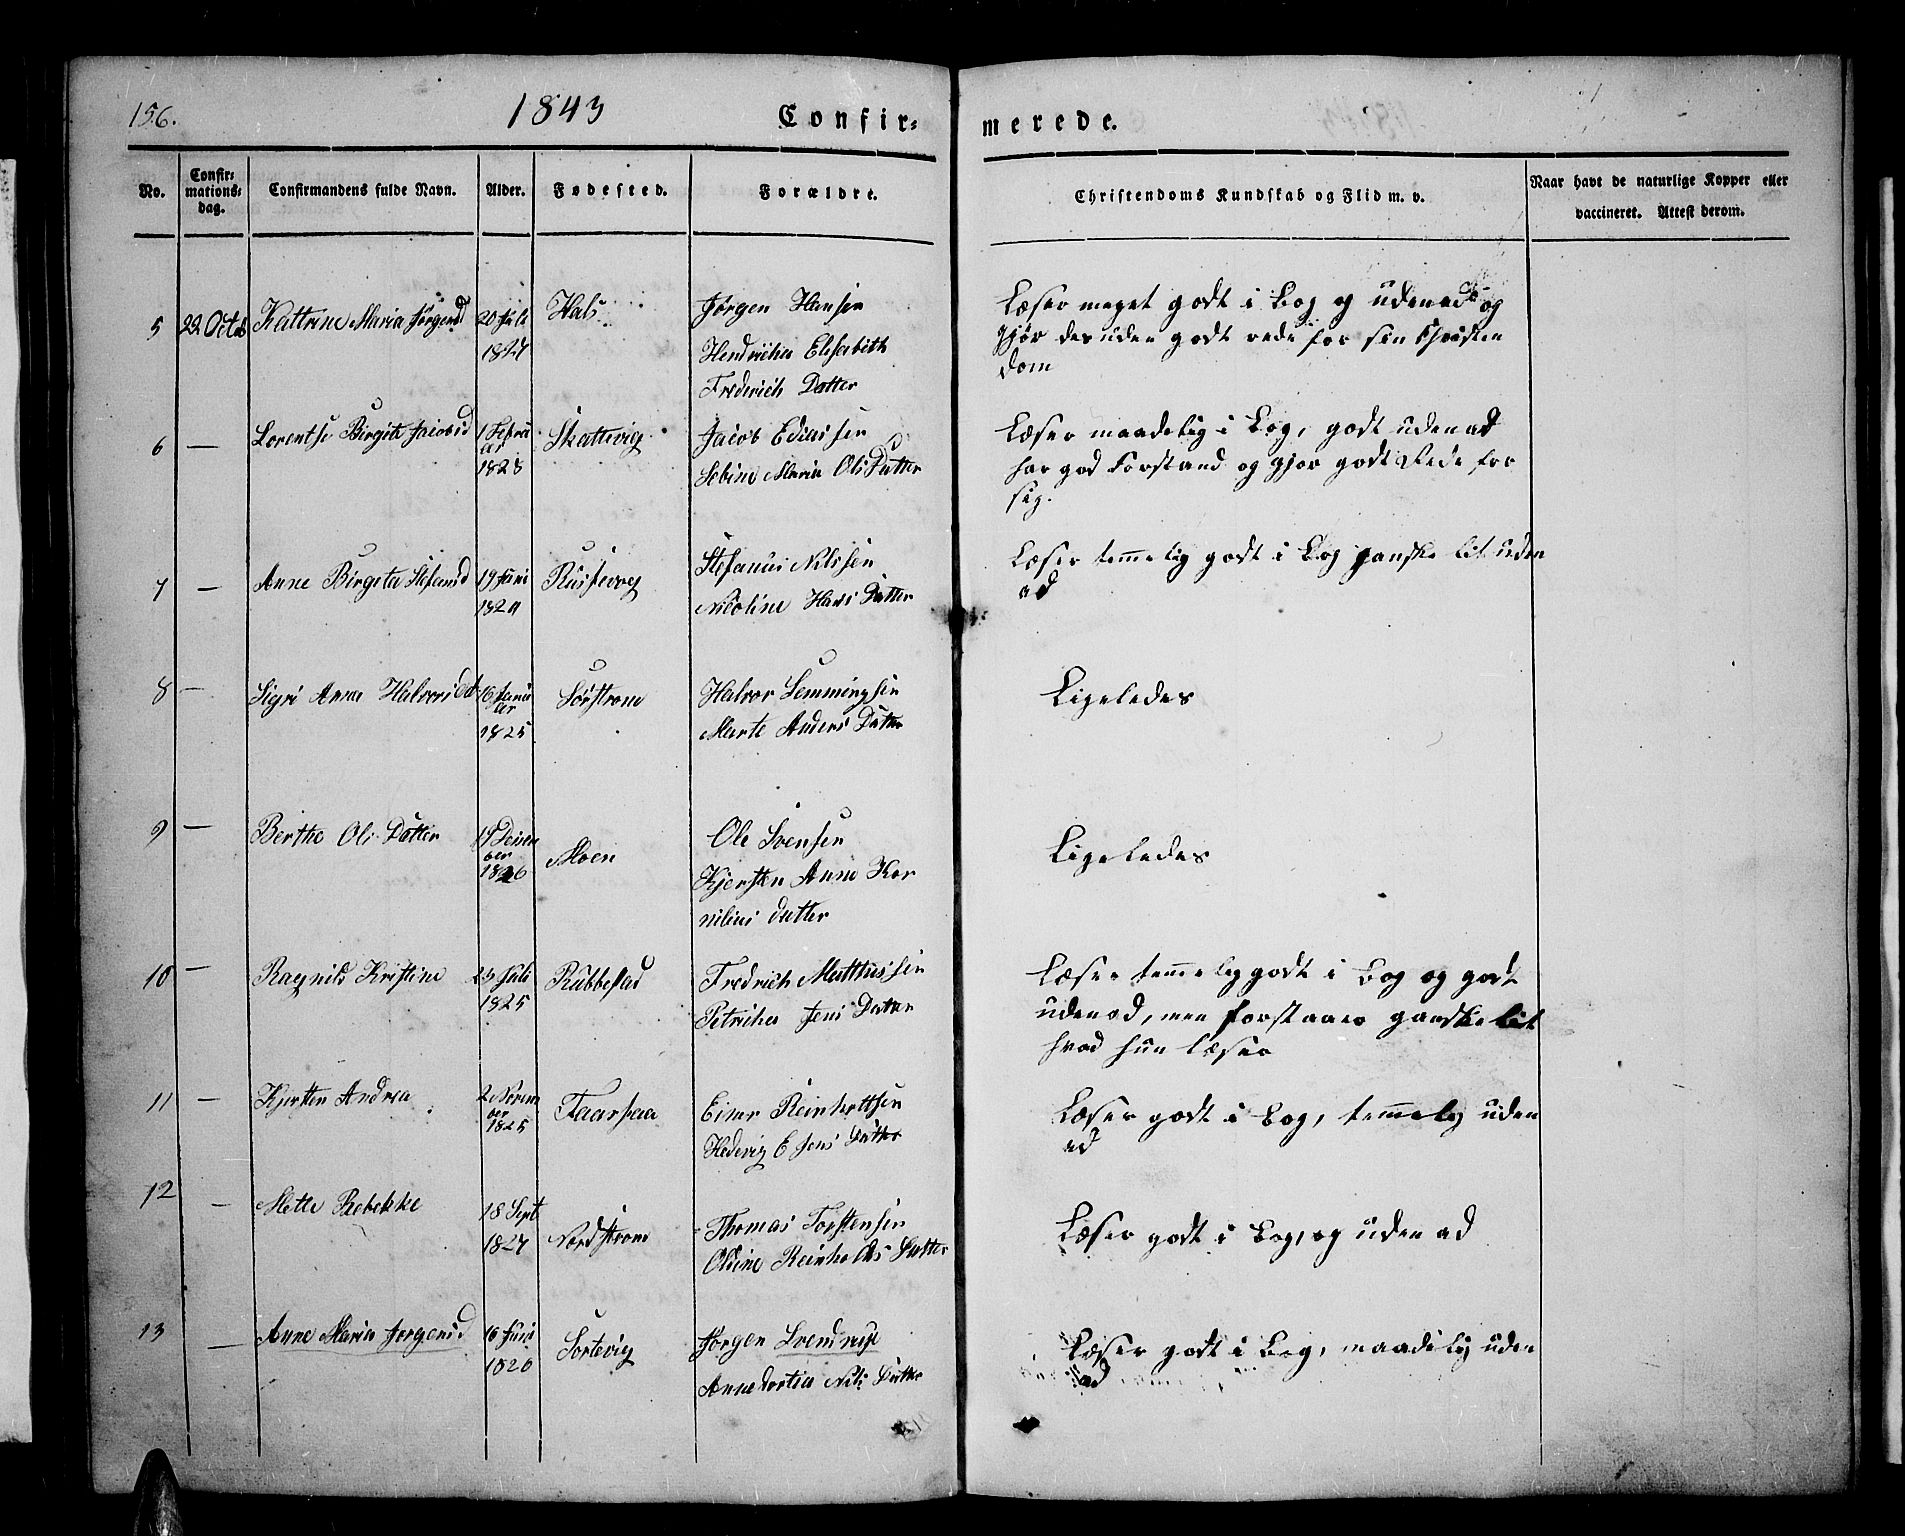 156.
1843
Confir-
merede.
No.
Confir-
mations-
dag.
Confirmandens fulde Navn.
Alder.
Fødested.
Forældre.
Christendoms Kundskab og Flid m. v.
Naar havt de naturlige Kopper eller
vaccineret. Attest derom.
5
22 Octb
Kattrine Maria Jørgensd
20 Juli
1827
Hals
Jørgen Hansen
Hendricha Elisabeth
Frederich Datter
Læser meget godt i Bog og udenad og
gjør desuden godt rede for sin Christen
dom
6
—
Lorentse Birgite Jacobsd
1 Febru
ar
1823
Skattevig
Jacob Ediassen
Sebine Maria Ols Datter
Læser maadelig i Bog, godt udenad
har god Forstand og gjør godt Rede for
sig.
7
—
Anne Birgita Stefansd
19 Juni
1824
Russevog
Stefanus Nilssen
Nicoline Hans Datter
Læser temelig godt i Bog ganske lit uden
ad
8
—
Sigri Anna Halvorsdat
16 Janu
ar
1825
Sørstrom
Halvor Lemmingsen
Marte Anders Datter
Ligeledes
9
—
Berthe Ols Datter
19 Desem
ber
1826
Moen
Ole Svensen
Kjersten Anne Kor
nilius datter
Ligeledes
10
—
Ragnild Kristine
23 Juli
1825
Rubbestad
Fredrich Matthissen
Petricha Jens Datter
Læser temelig godt i Bog og godt
udenad, men forstaaer ganske lit
hvad hun læser
11
—
Kjersten Andrea
2 Novem
ber
1825
Faarpaa
Einer Reinholtsen
Hedevig E Jens Datter
Læser godt i Bog, temelig uden
ad
12
—
Mette Rebekke
18 Sept
1827
Nordstrom
Thomas Torstensen
Oldine Reinholds Datter
Læser godt i Bog, og uden ad
13
—
Anne Maria Jørgensd
16 Juni
1826
Sortevig
Jørgen Svendrup
Annedortia Nils Datter
Læser godt i Bog, maadelig uden
ad